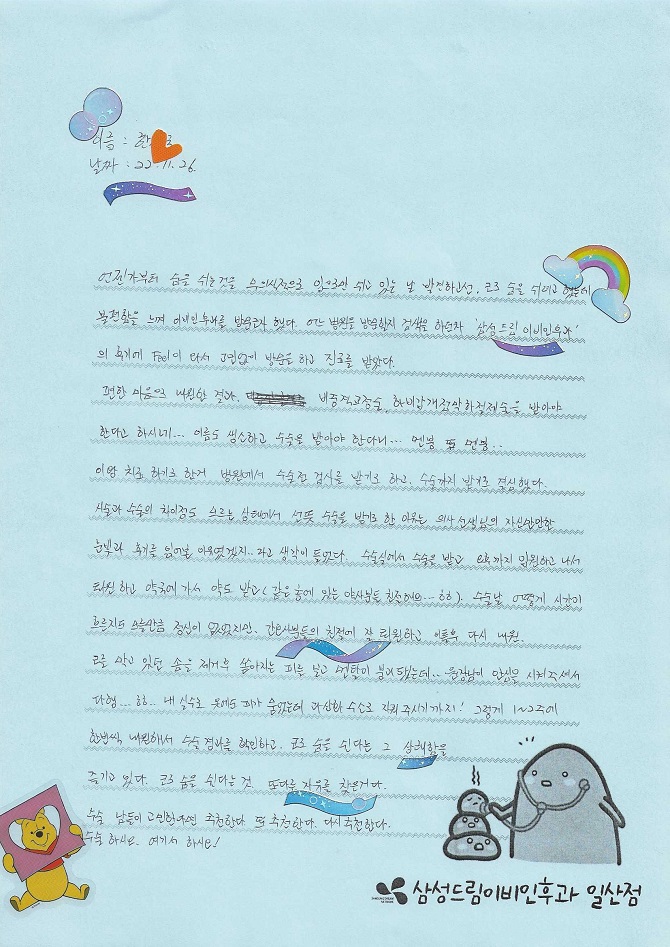 이름 : 한
날짜 : 22. 11. 26.
언젠가부터 숨을 쉬는것을 무의식적으로 입으로만 쉬고 있는 날 발견하고선, 코로 숨을 쉬려고 했는데
불편함을 느껴 이비인후과를 방문코자 했다. 어느 병원을 방문할지 검색을 하던차 '삼성드림 이비인후과'
의 후기에 Feel이 타서 고민없이 방문을 하고 진료를 받았다.
편한 마음으로 내원한 결과, 비중격교정술, 하비갑개점막하절제술을 받아야
한다고 하시네... 이름도 생소하고 수술을 받아야 한다니... 멘붕 또 멘붕..
이왕 치료 하기로 한거 병원에서 수술전 검사를 받기로 하고, 수술까지 받기로 결심했다.
시술과 수술의 차이점도 모르는 상태에서 선뜻 수술을 받기로 한 이유는 의사 선생님의 자신만만한
눈빛과 후기를 읽어본 이유였겠지..라고 생각이 들었다. 수술실에서 수술을 받고 오후까지 입원하고 나서
퇴원하고 약국에 가서 약도 받고(같은 층에 있는 약사분들 친절해요...ㅎㅎ). 수술날 어떻게 시간이
흐르지도 모를만큼 정신이 없었지만, 간호사분들의 친절에 잘 퇴원하고 이틀후 다시 내원.
코를 막고 있던 솜을 제거후 쏟아지는 피를 보고 멘탈이 붕괴됐는데.. 원장님이 안심을 시켜주셔서
다행...ㅎㅎ.. 내 실수로 옷에도 피가 묻었는데 과산화 수소로 지워주시기까지! 그렇게 1~2주에
한번씩 내원해서 수술경과를 확인하고, 코로 숨을 쉰다는 그 상쾌함을
즐기고 있다. 코로 숨을 쉰다는 것, 또다른 자유를 찾은거다.
수술 남들이 고민한다면 추천한다. 또 추천한다. 다시 추천한다.
수술 하세요. 여기서 하세요!
삼성드림이비인후과 일산점